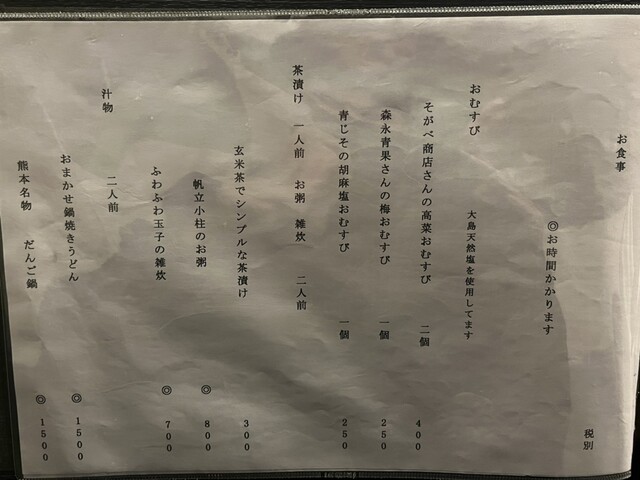 お食事 税別
◎お時間かかります
おむすび 大島天然塩を使用してます
そがべ商店さんの高菜おむすび 二個 400
森永青果さんの梅おむすび 一個 250
青じその胡麻塩おむすび 一個 250
茶漬け 一人前 お粥 雑炊 二人前
玄米茶でシンプルな茶漬け 300
帆立小柱のお粥 ◎ 800
ふわふわ玉子の雑炊 ◎ 700
汁物 二人前
おまかせ鍋焼きうどん ◎ 1500
熊本名物 だんご鍋 ◎ 1500